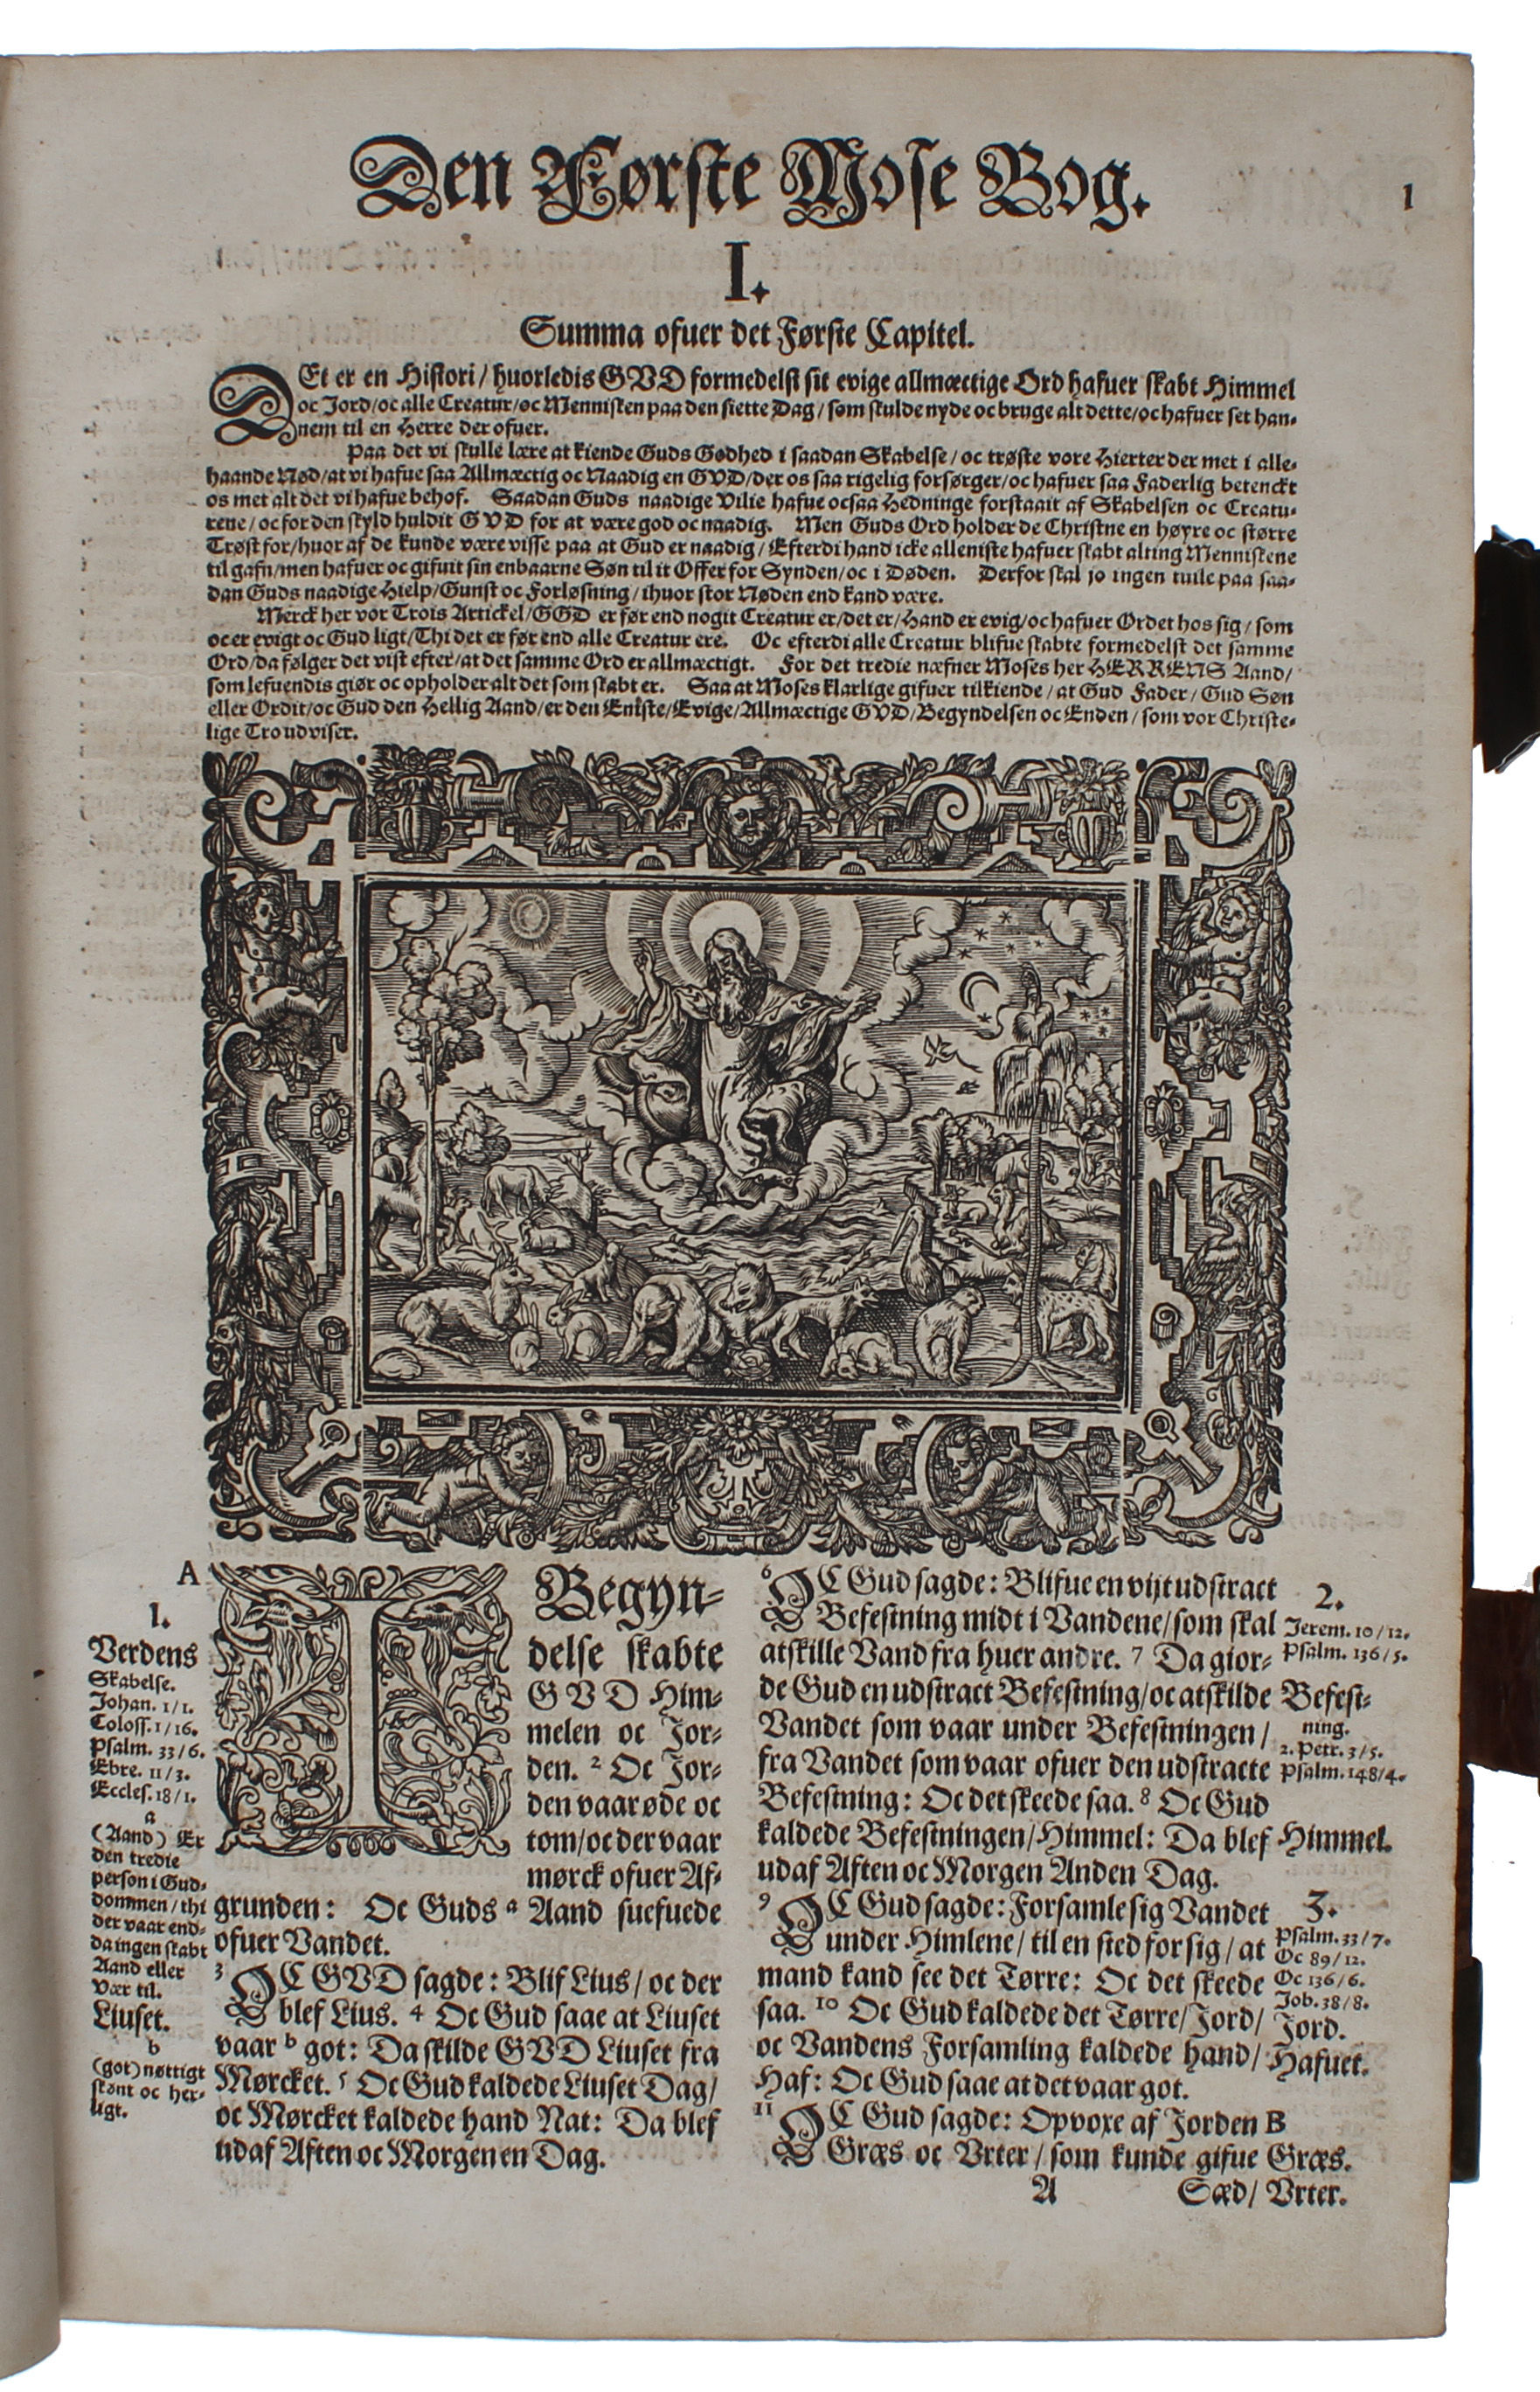 Den Første Mose Bog.
1
I.
Summa ofuer det Første Capitel.
DEt er en Histori / huorledis GVD formedelst sit evige allmæctige Ord hafuer skabt Himmel
oc Jord/oc alle Creatur/oc Mennisken paa den siette Dag / som skulde nyde oc bruge alt dette/oc hafuer set han-
nem til en Herre der ofuer.
Paa det vi skulle lære at kiende Guds Godhed i saadan Skabelse / oc trøste vore Hierter der met i alle-
haande Nød/at vi hafue saa Allmæctig oc Naadig en GVD/der os saa rigelig forsørger/oc hafuer saa Faderlig betenckt
os met alt det vi hafue behof. Saadan Guds naadige Vilie hafue ocsaa Hedninge forstaait af Skabelsen oc Creatu-
rene / oc for den skyld huldit GVD for at være god oc naadig. Men Guds Ord holder de Christne en høyre oc større
Trøst for/huor af de kunde være visse paa at Gud er naadig / Efterdi hand icke alleniste hafuer skabt alting Menniskene
til gafn/men hafuer oc gifuit sin enbaarne Søn til it Offer for Synden/oc i Døden. Derfor skal jo ingen tuile paa saa-
dan Guds naadige Hielp/Gunst oc Forløsning / ihuor stor Nøden end kand være.
Merck her vor Trois Artickel/GGD er før end nogit Creatur er/det er/Hand er evig/oc hafuer Ordet hos sig / som
oc er evigt oc Gud ligt/Thi det er før end alle Creatur ere. Oc efterdi alle Creatur blifue skabte formedelst det samme
Ord/da følger det vist efter/at det samme Ord er allmæctigt. For det tredie næfner Moses her HERRENS Aand/
som lefuendis giør oc opholder alt det som skabt er. Saa at Moses klarlige gifuer tilkiende / at Gud Fader / Gud Søn
eller Ordit/oc Gud den Hellig Aand/er den Eniste/Evige/Allmæctige GVD/Begyndelsen oc Enden / som vor Christe-
lige Tro udviser.
A
1.
Verdens
Skabelse.
Johan. 1/1.
Coloss. 1/16.
Psalm. 33/6.
Ebre. 11/3.
Eccles. 18/1.
a
(Aand) Er
den tredie
person i Gud-
dommen / thi
der vaar end-
da ingen skabt
Aand eller
Vær til.
Liuset.
b
(got) nøttigt
skønt oc her-
ligt.
I Begyn-
delse skabte
GVD Him-
melen oc Jor-
den. 2 Oc Jor-
den vaar øde oc
tom/oc der vaar
mørck ofuer Af-
grunden: Oc Guds a Aand suefuede
ofuer Vandet.
3 OC GVD sagde: Blif Lius / oc der
blef Lius. 4 Oc Gud saae at Liuset
vaar b got: Da skilde GVD Liuset fra
Mørcket. 5 Oc Gud kaldede Liuset Dag/
oc Mørcket kaldede hand Nat: Da blef
udaf Aften oc Morgen en Dag.
6 OC Gud sagde: Blifue en vijt udstract
Befestning midt i Vandene/som skal
atskille Vand fra huer andre. 7 Da gior-
de Gud en udstract Befestning/oc atskilde
Vandet som vaar under Befestningen /
fra Vandet som vaar ofuer den udstracte
Befestning: Oc det skeede saa. 8 Oc Gud
kaldede Befestningen/Himmel: Da blef
udaf Aften oc Morgen Anden Dag.
9 OC Gud sagde: Forsamle sig Vandet
under Himlene / til en sted for sig / at
mand kand see det Tørre: Oc det skeede
saa. 10 Oc Gud kaldede det Tørre/Jord/
oc Vandens Forsamling kaldede hand/
Haf: Oc Gud saae at det vaar got.
11 OC Gud sagde: Opvoxe af Jorden
Græs oc Vrter / som kunde gifue
2.
Jerem. 10/12.
Psalm. 136/5.
Befest-
ning.
2. Petr. 3/5.
Psalm. 148/4.
Himmel.
3.
Psalm. 33/7.
Oc 89/12.
Oc 136/6.
Job. 38/8.
Jord.
Hafuet.
B
Græs.
A
Sæd/
Vrter.